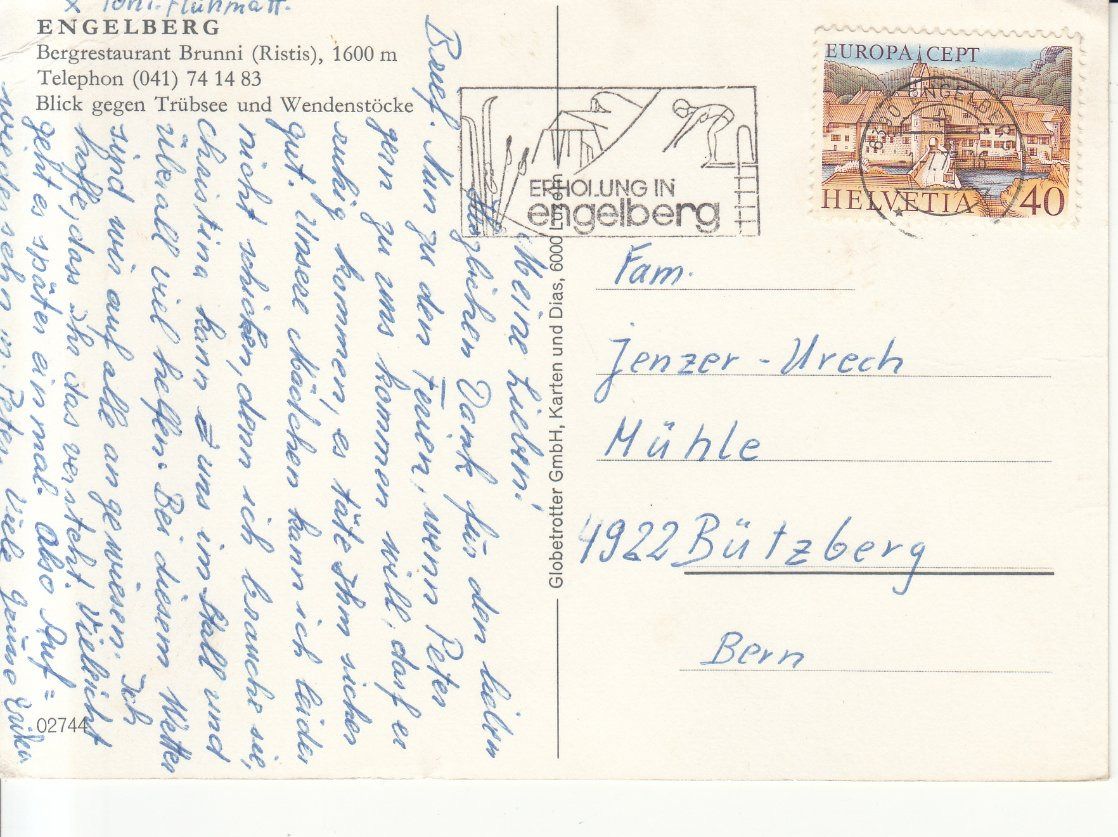 ENGELBERG
Bergrestaurant Brunni (Ristis), 1600 m
Telephon (041) 74 14 83
Blick gegen Trübsee und Wendenstöcke
Meine Lieben!
Herzlichen Dank für den lieben
Brief. Nun zu den Ferien, wenn Peter
gern zu uns kommen will, darf er
ruhig kommen, es täte Ihm sicher
gut. Unsere Mädchen kann ich leider
nicht schicken, denn ich brauche sie,
Christina kann uns im Stall und
überall viel helfen. Bei diesem Wetter
sind wir auf alle angewiesen. Ich
hoffe, dass ihr das versteht. Vielleicht
geht es später einmal. Also Auf=
wiedersehn m. Peter. Viele Grüsse Erika
x Toni. Flühmatt.
02744
Globetrotter GmbH, Karten und Dias, 6000 Luzern
ERHOLUNG IN
engelberg
EUROPA CEPT
HELVETIA 40
ENGELBERG
Fam.
Jenzer - Urech
Mühle
4922 Bützberg
Bern